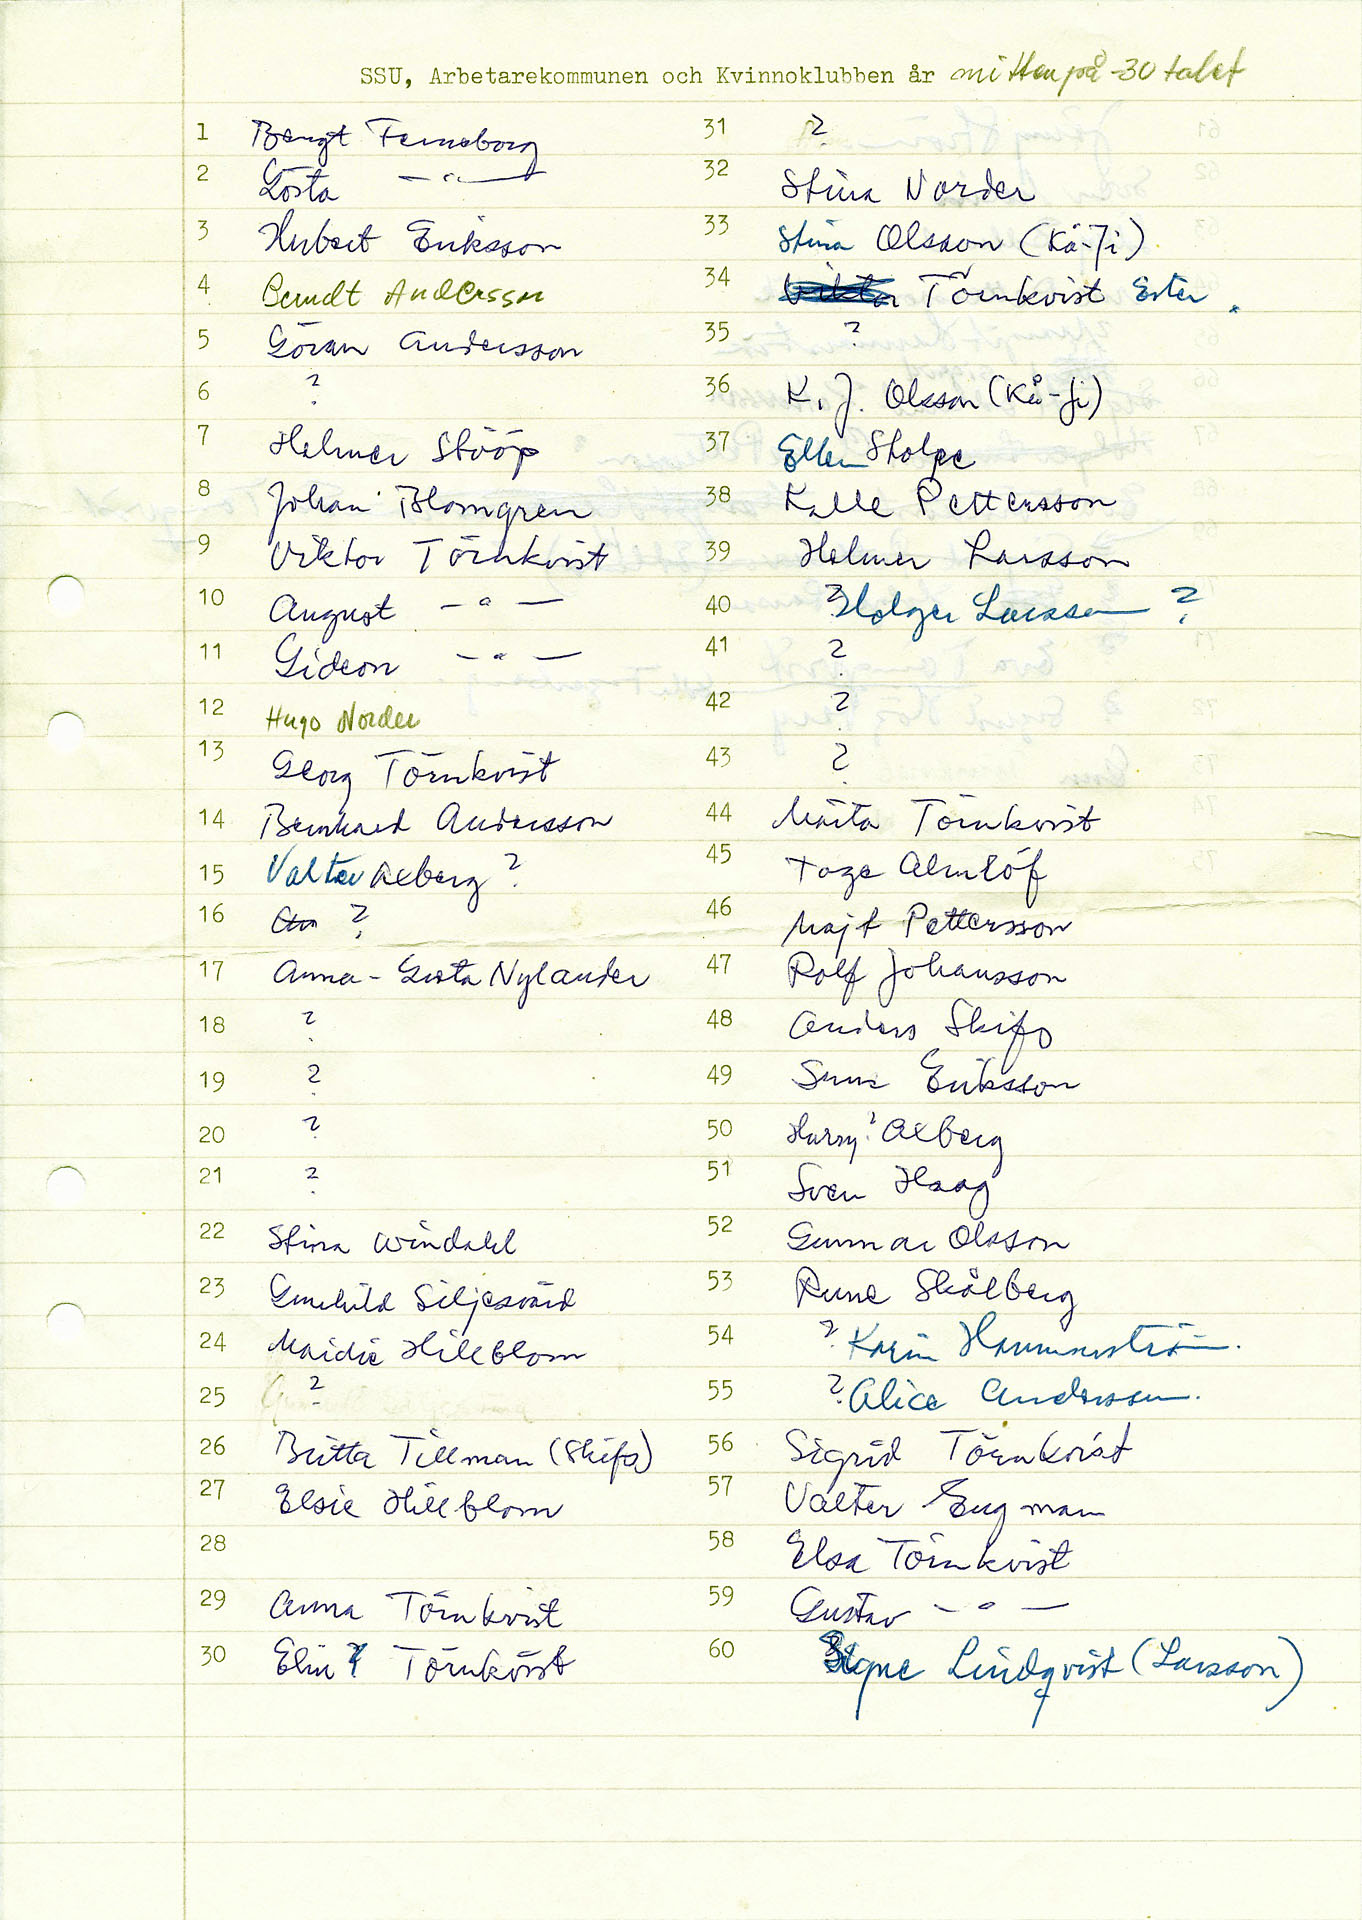 SSU, Arbetarekommunen och Kvinnoklubben år mitten på -30 talet
1 Bengt Ferneborg
2 Gösta —"—
3 Hubert Eriksson
4 Berndt Andersson
5 Göran Andersson
6 ?
7 Helmer Stööp
8 Johan Blomgren
9 Viktor Törnkvist
10 August —"—
11 Gideon —"—
12 Hugo Norder
13 Georg Törnkvist
14 Bernhard Andersson
15 Valter Axberg ?
16 ?
17 Anna-Greta Nylander
18 ?
19 ?
20 ?
21 ?
22 Stina Windahl
23 Gunhild Siljesvärd
24 Maidie Hillblom
25 ?
26 Britta Tillman (Skifs)
27 Elsie Hillblom
28
29 Anna Törnkvist
30 Elin ? Törnkvist
31 ?
32 Stina Norder
33 Stina Olsson (Kå-Ji)
34 Viktor Törnkvist Ester.
35 ?
36 K. J. Olsson (Kå-Ji)
37 Ellen Stolpe
38 Kalle Pettersson
39 Helmer Larsson
40 ? Holger Larsson ?
41 ?
42 ?
43 ?
44 Märta Törnkvist
45 Tage Almlöf
46 Majt Pettersson
47 Rolf Johansson
48 Anders Skifs
49 Sune Eriksson
50 Harry ? Axberg
51 Sven Haag
52 Gunnar Olsson
53 Rune Skålberg
54 ? Karin Hammarström.
55 ? Alice Andersson.
56 Sigrid Törnkvist
57 Valter Engman
58 Elsa Törnkvist
59 Gustav —"—
60 Signe Lindqvist (Larsson)